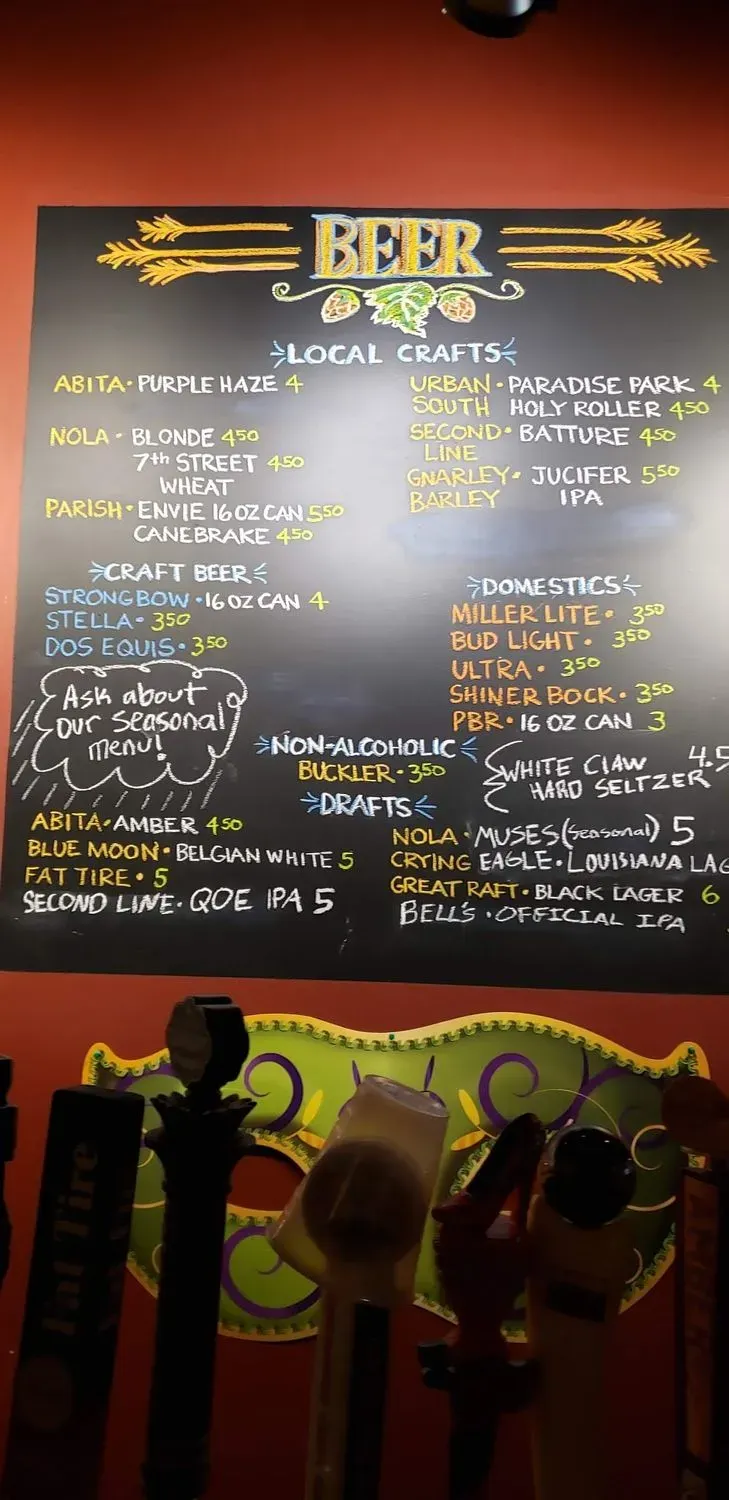 BEER
LOCAL CRAFTS
ABITA · PURPLE HAZE 4
NOLA · BLONDE 450
7th STREET 450
WHEAT
PARISH · ENVIE 16 OZ CAN 550
CANEBRAKE 450
URBAN · PARADISE PARK 4
SOUTH HOLY ROLLER 450
SECOND · BATTURE 450
LINE
GNARLEY · JUCIFER 550
BARLEY IPA
CRAFT BEER
STRONGBOW · 16 OZ CAN 4
STELLA · 350
DOS EQUIS · 350
Ask about
our seasonal
menu!
DOMESTICS
MILLER LITE · 350
BUD LIGHT · 350
ULTRA · 350
SHINER BOCK · 350
PBR · 16 OZ CAN 3
NON-ALCOHOLIC
BUCKLER · 350
WHITE CLAW 4.5
HARD SELTZER
DRAFTS
ABITA · AMBER 450
BLUE MOON · BELGIAN WHITE 5
FAT TIRE · 5
SECOND LINE · QOE IPA 5
NOLA · MUSES (seasonal) 5
CRYING EAGLE · LOUISIANA LAG
GREAT RAFT · BLACK LAGER 6
BELL'S · OFFICIAL IPA
Fat Tire